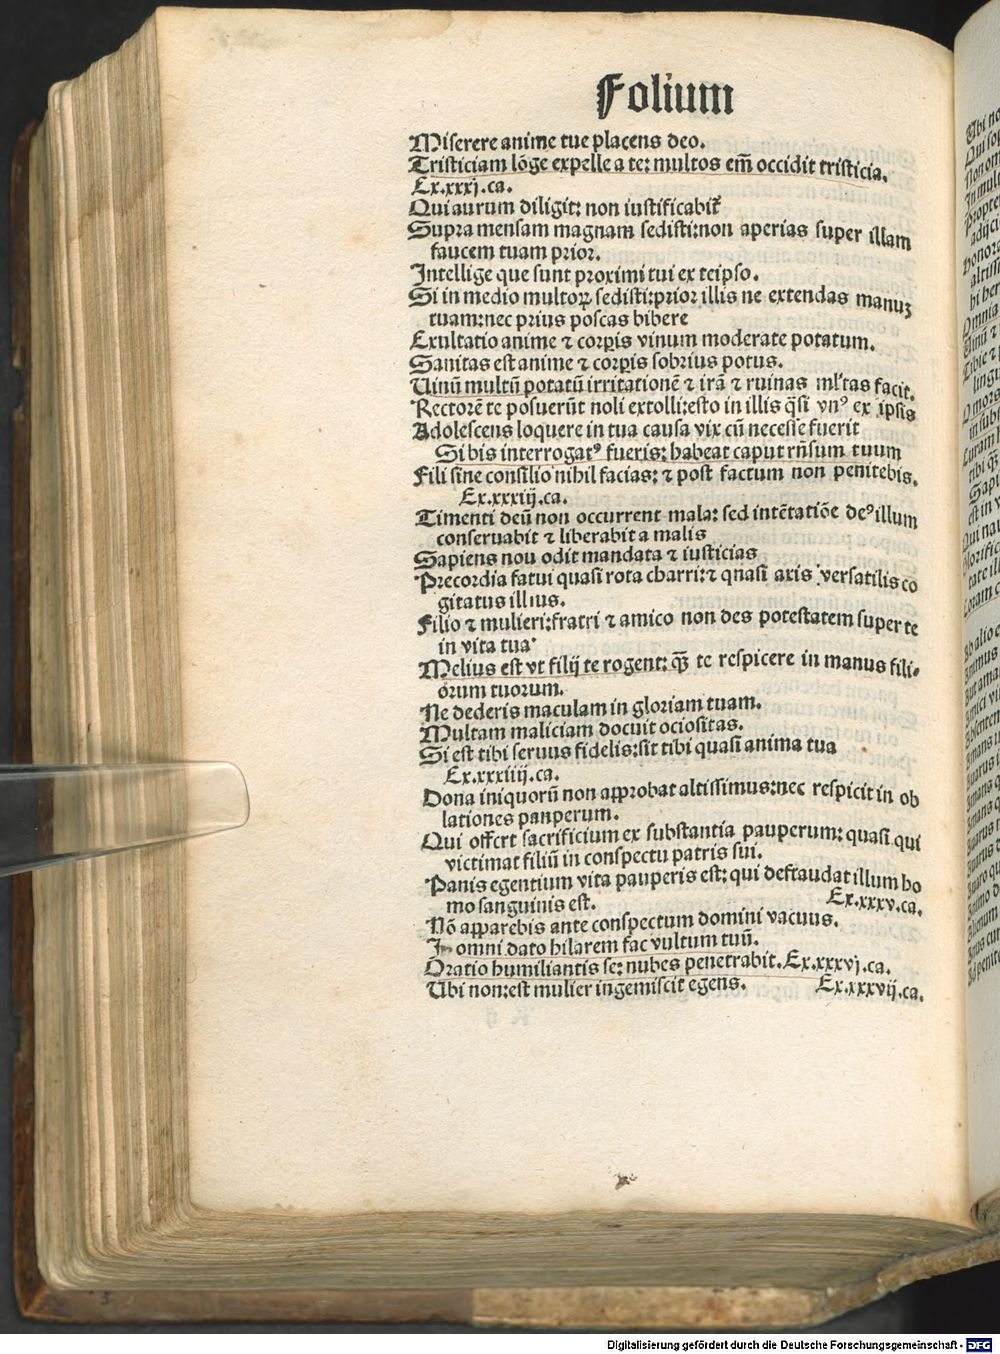 Folium
Miserere anime tue placens deo.
Tristiciam lõge expelle a te: multos em̃ occidit tristicia.
Ex.xxxj.ca.
Qui aurum diligit: non iustificabit̃
Supra mensam magnam sedisti:non aperias super illam
faucem tuam prior.
Intellige que sunt proximi tui ex teipso.
Si in medio multoꝝ sedisti:prior illis ne extendas manuꝫ
tuam:nec prius poscas bibere
Exultatio anime ⁊ corꝑis vinum moderate potatum.
Sanitas est anime ⁊ corꝑis sobrius potus.
Uinũ multũ potatũ irritationẽ ⁊ irã ⁊ ruinas ml̃tas facit.
Rectorẽ te posuerũt noli extolli:esto in illis q̃si vnꝰ ex ipsis
Adolescens loquere in tua causa vix cũ necesse fuerit
Si bis interrogatꝰ fueris: habeat caput rñsum tuum
Fili sine consilio nihil facias: ⁊ post factum non penitebis.
Ex.xxxiij.ca.
Timenti deũ non occurrent mala: sed intẽtatiõe deꝰ illum
conseruabit ⁊ liberabit a malis
Sapiens nou odit mandata ⁊ iusticias
Precordia fatui quasi rota charri:⁊ qnasi axis versatilis co
gitatus illius.
Filio ⁊ mulieri:fratri ⁊ amico non des potestatem super te
in vita tua
Melius est vt filij te rogent: q̃ꝫ te respicere in manus fili-
orum tuorum.
Ne dederis maculam in gloriam tuam.
Multam maliciam docuit ociositas.
Si est tibi seruus fidelis:sit tibi quasi anima tua
Ex.xxxiiij.ca.
Dona iniquorũ non approbat altissimus:nec respicit in ob
lationes panperum.
Qui offert sacrificium ex substantia pauperum: quasi qui
victimat filiũ in conspectu patris sui.
Panis egentium vita pauperis est: qui defraudat illum ho
mo sanguinis est. Ex.xxxv.ca.
Nõ apparebis ante conspectum domini vacuus.
In omni dato hilarem fac vultum tuũ.
Oratio humiliantis se: nubes penetrabit.Ex.xxxvj.ca.
Ubi non:est mulier ingemiscit egens. Ex.xxxvij.ca.
Digitalisierung gefördert durch die Deutsche Forschungsgemeinschaft - DFG